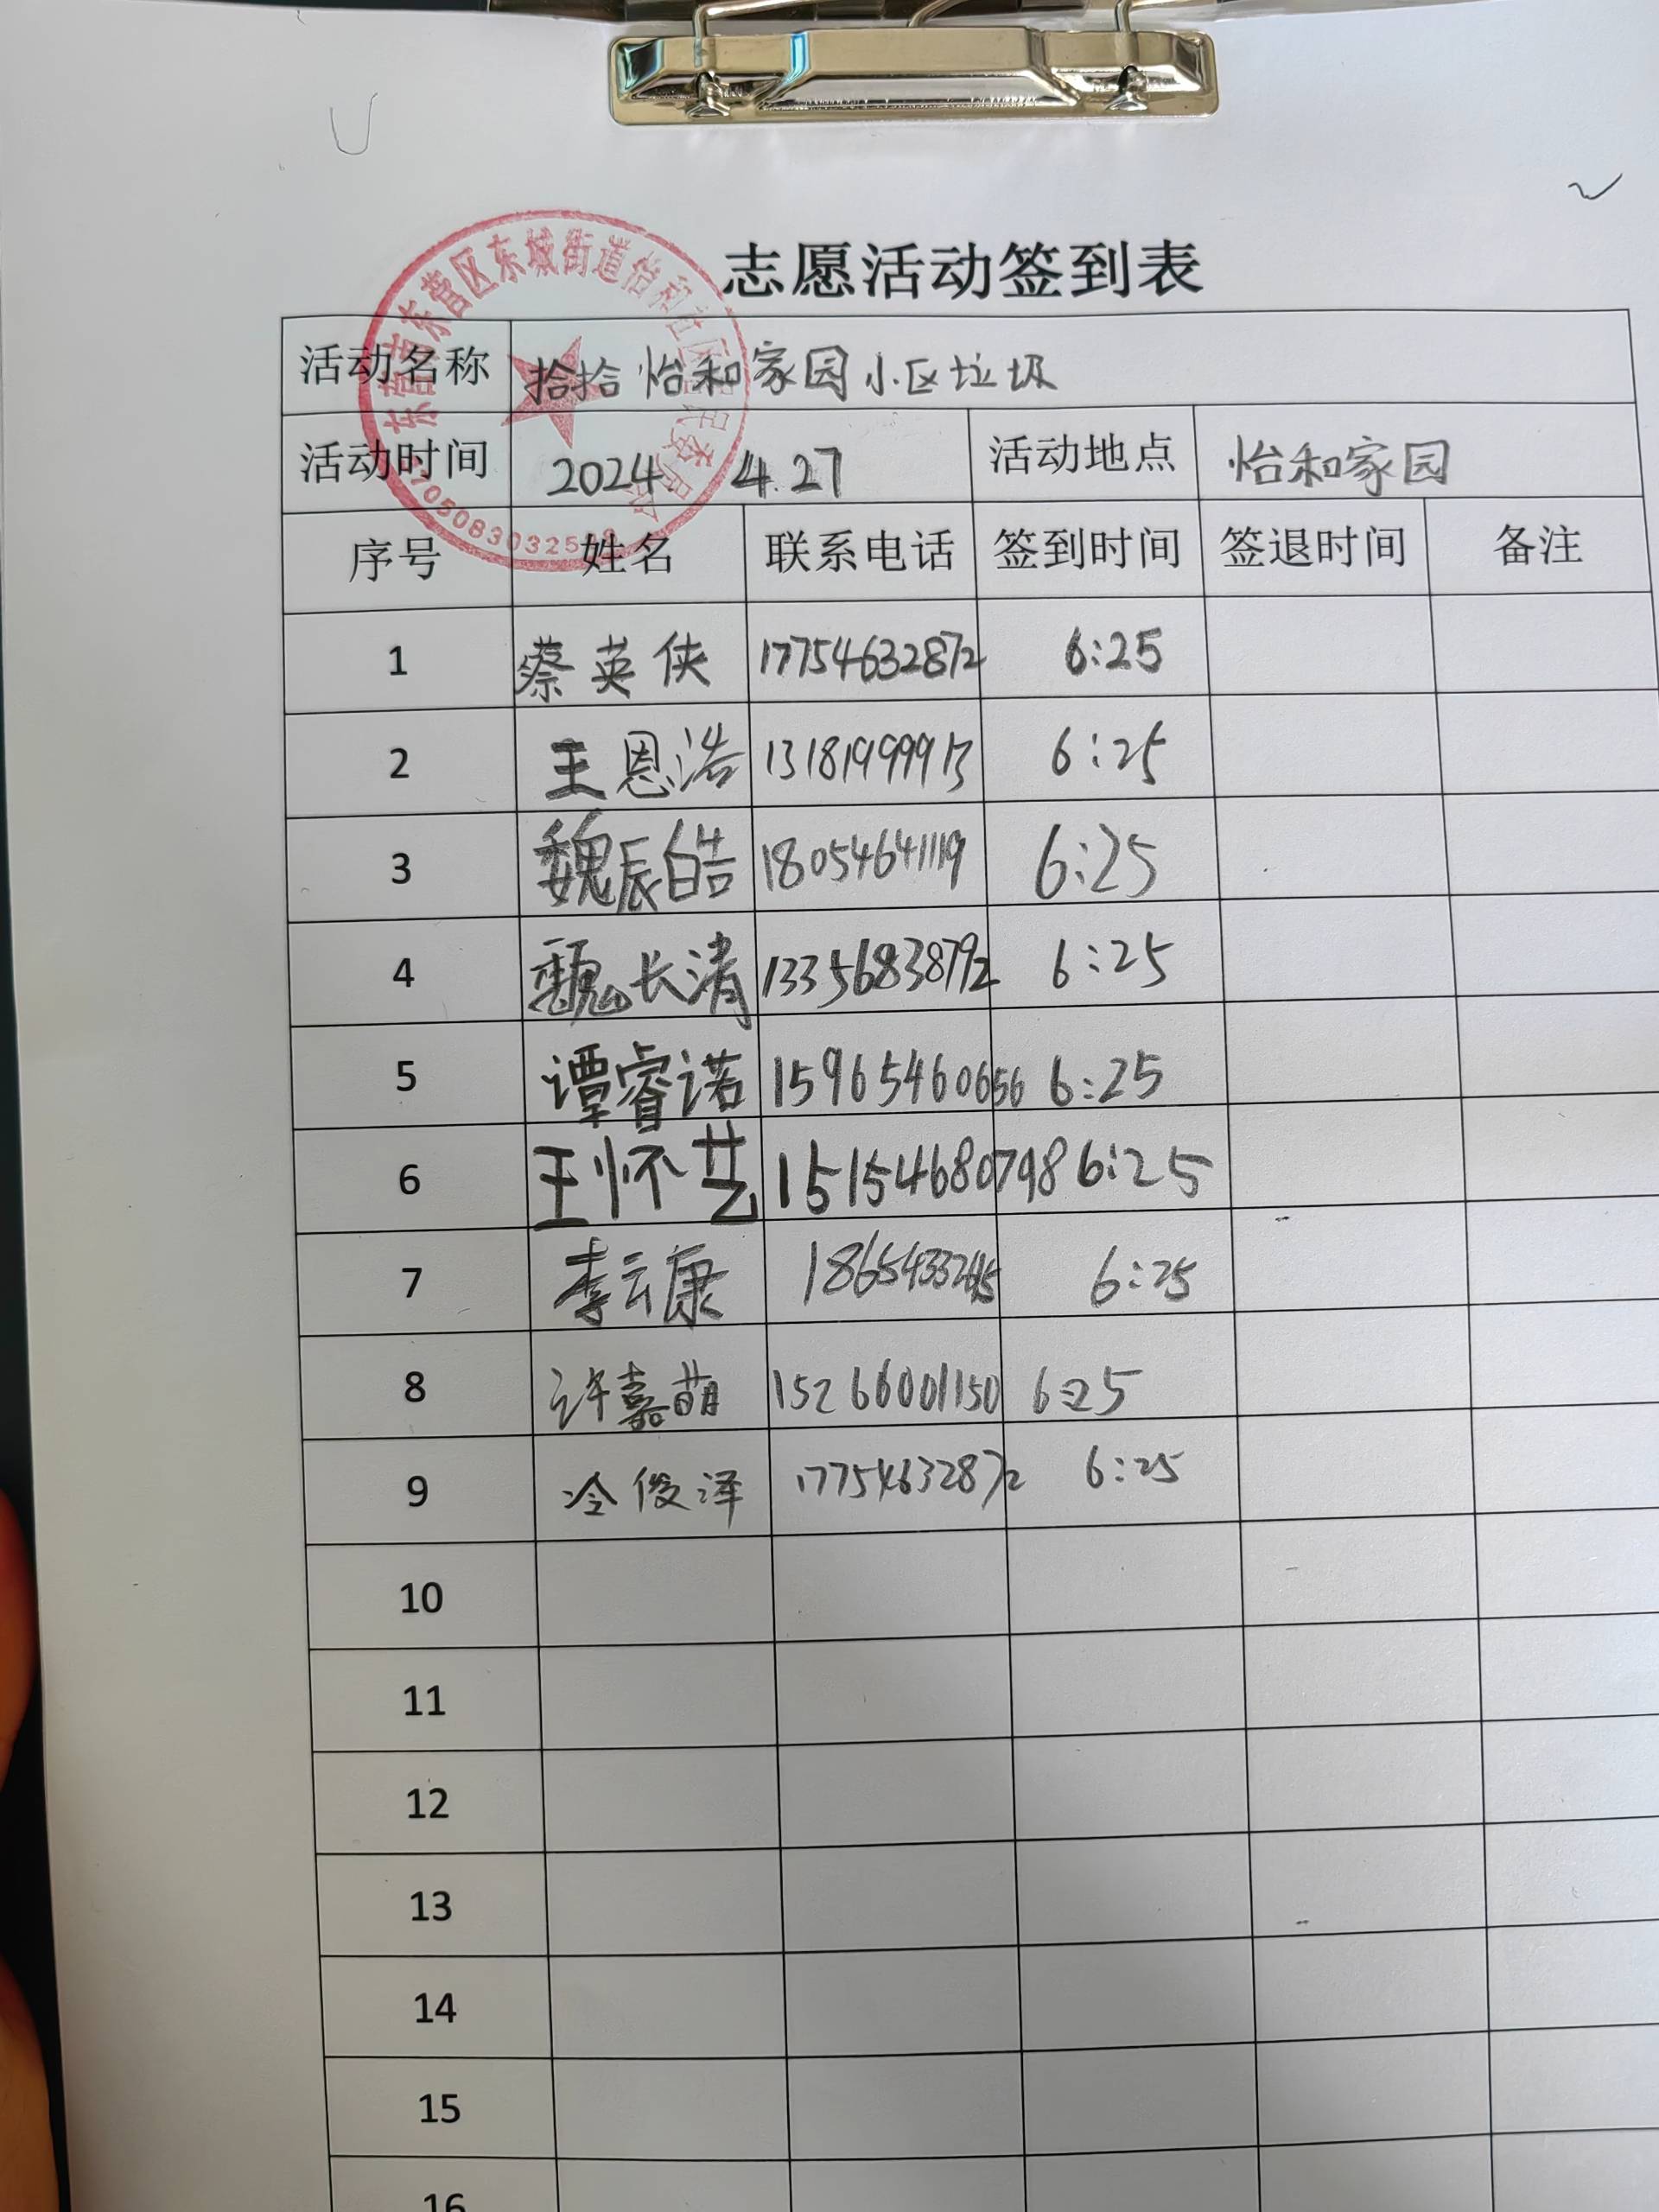 东营市东营区东城街道怡和社区居民委员会
志愿活动签到表
活动名称 拾拾怡和家园小区垃圾
活动时间 2024 4.27 活动地点 怡和家园
序号 姓名 联系电话 签到时间 签退时间 备注
1 蔡英侠 17754632872 6:25
2 王恩浩 13181999913 6:25
3 魏辰皓 18054641119 6:25
4 魏长清 13356838792 6:25
5 谭睿诺 15965460656 6:25
6 王怀艺 15154680798 6:25
7 李云康 6:25
8 许嘉萌 15266001150 6:25
9 冷俊泽 17754632872 6:25
10
11
12
13
14
15
16